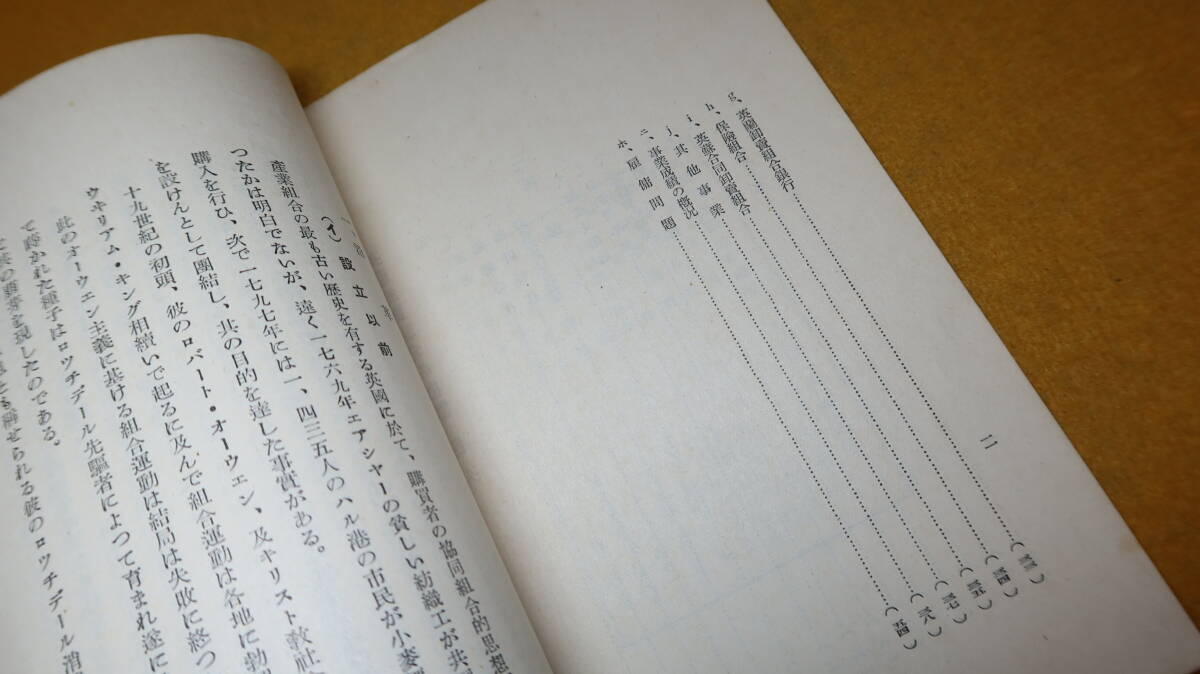 g、英蘭卸賣組合銀行
h、保險組合
i、英蘇合同卸賣組合
j、其他事業
ニ、事業成績の概況
ホ、雇傭問題
二
(イ) 設立以前
產業組合の最も古い歷史を有する英國に於て、購買者の協同組合的思想
つたかは明白でないが、遠く一七六九年エアシャーの貧しい紡織工が共
購入を行ひ、次で一七九七年には一、四三五人のハル港の市民が小麥
を設けんとして團結し、其の目的を達した事實がある。
十九世紀の初頭、彼のロバート・オーウェン、及キリスト敎社
ウキリアム・キング相續いで起るに及んで組合運動は各地に勃
此のオーウェン主義に基ける組合運動は結局は失敗に終つ
て蒔かれた種子はロッチデール先驅者によつて育まれ遂に
を現したのである。
とも稱せられる彼のロッチデール消